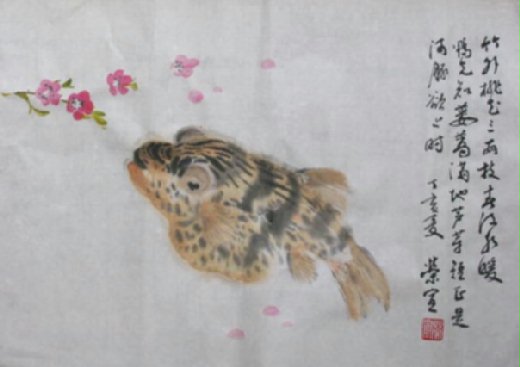 竹外桃花三两枝春江水暖
鸭先知蒌蒿满地芦芽短正是
河豚欲上时 丁亥夏 荣